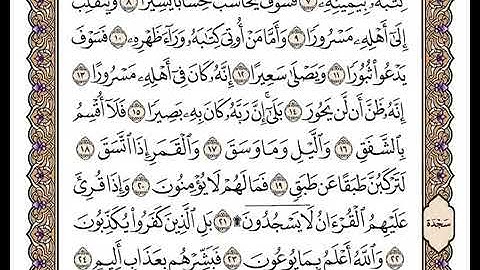 كِتَٰبَهُۥ بِيَمِينِهِۦ ٧ فَسَوْفَ يُحَاسَبُ حِسَابًا يَسِيرًا ٨ وَيَنقَلِبُ
إِلَىٰٓ أَهْلِهِۦ مَسْرُورًا ٩ وَأَمَّا مَنْ أُوتِىَ كِتَٰبَهُۥ وَرَآءَ ظَهْرِهِۦ ١٠ فَسَوْفَ
يَدْعُوا۟ ثُبُورًا ١١ وَيَصْلَىٰ سَعِيرًا ١٢ إِنَّهُۥ كَانَ فِىٓ أَهْلِهِۦ مَسْرُورًا ١٣
إِنَّهُۥ ظَنَّ أَن لَّن يَحُورَ ١٤ بَلَىٰٓ إِنَّ رَبَّهُۥ كَانَ بِهِۦ بَصِيرًا ١٥ فَلَآ أُقْسِمُ
بِٱلشَّفَقِ ١٦ وَٱلَّيْلِ وَمَا وَسَقَ ١٧ وَٱلْقَمَرِ إِذَا ٱتَّسَقَ ١٨
لَتَرْكَبُنَّ طَبَقًا عَن طَبَقٍ ١٩ فَمَا لَهُمْ لَا يُؤْمِنُونَ ٢٠ وَإِذَا قُرِئَ
عَلَيْهِمُ ٱلْقُرْءَانُ لَا يَسْجُدُونَ ۩ ٢١ بَلِ ٱلَّذِينَ كَفَرُوا۟ يُكَذِّبُونَ
سَجْدَة
٢٢ وَٱللَّهُ أَعْلَمُ بِمَا يُوعُونَ ٢٣ فَبَشِّرْهُم بِعَذَابٍ أَلِيمٍ ٢٤